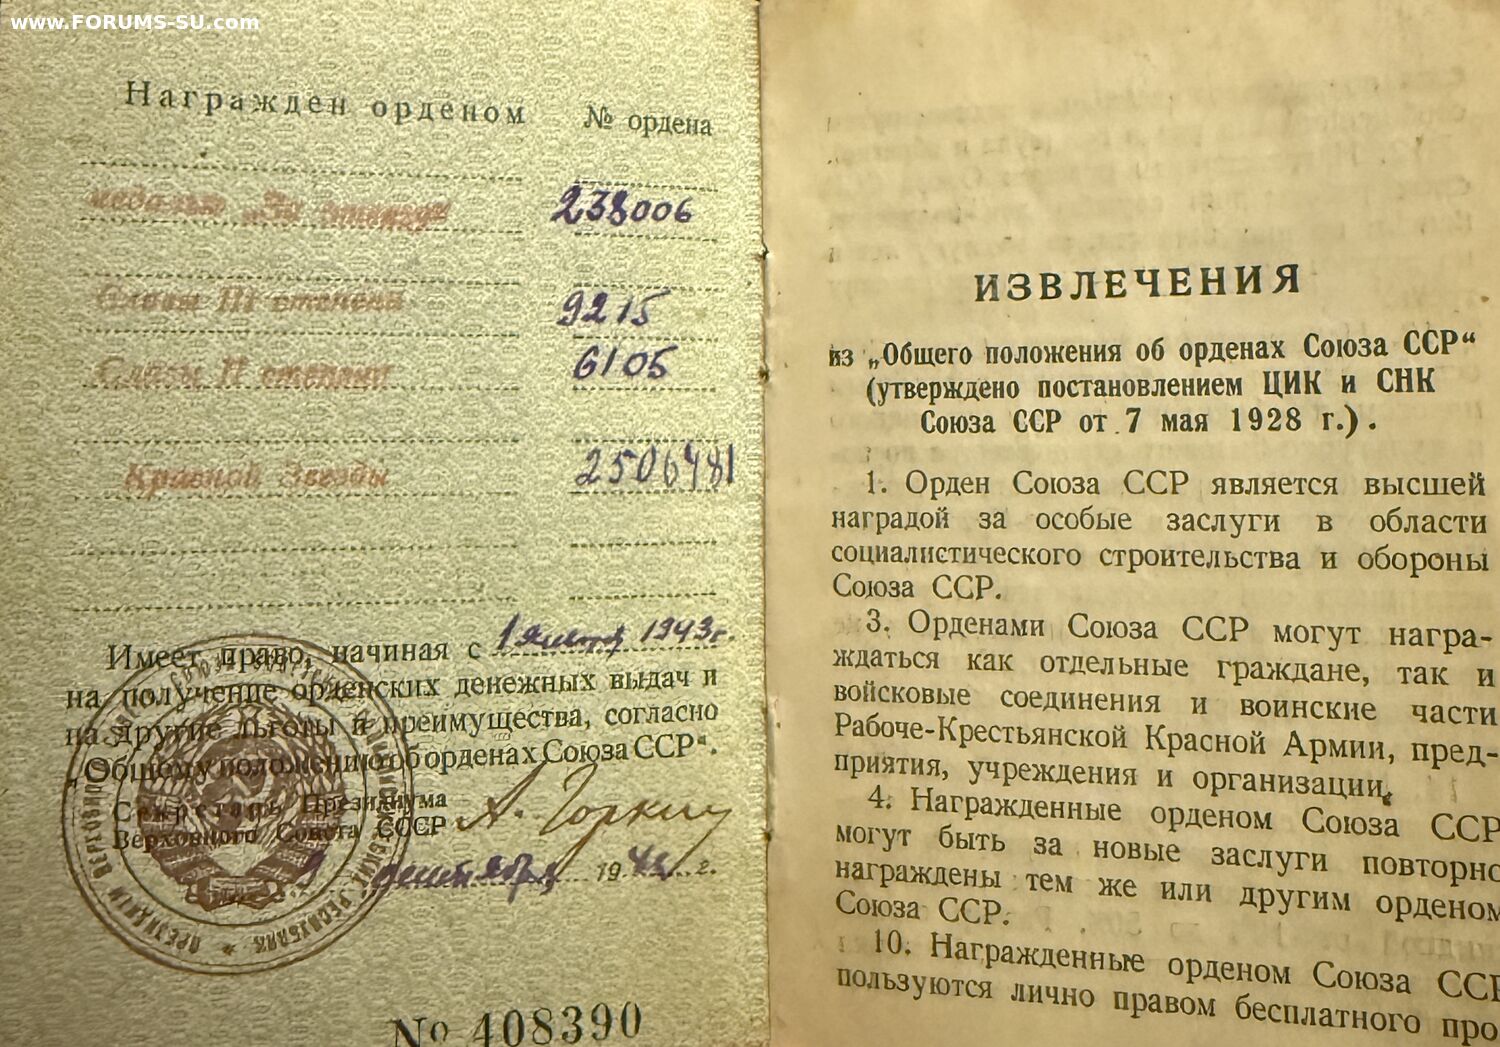 www.FORUMS-SU.com
Награжден орденом № ордена
медалью „За отвагу“ 238006
Славы III степени 9215
Славы II степени 6105
Красной Звезды 2506481
Имеет право, начиная с 1 1943г.
на получение орденских денежных выдач и
на другие льготы и преимущества, согласно
„Общему положению об орденах Союза ССР“.
Секретарь Президиума
Верховного Совета СССР А. Горкин
19 г.
№ 408390
ИЗВЛЕЧЕНИЯ
из „Общего положения об орденах Союза ССР“
(утверждено постановлением ЦИК и СНК
Союза ССР от 7 мая 1928 г.).
1. Орден Союза ССР является высшей
наградой за особые заслуги в области
социалистического строительства и обороны
Союза ССР.
3. Орденами Союза ССР могут награ-
ждаться как отдельные граждане, так и
войсковые соединения и воинские части
Рабоче-Крестьянской Красной Армии, пред-
приятия, учреждения и организации.
4. Награжденные орденом Союза ССР
могут быть за новые заслуги повторно
награждены тем же или другим орденом
Союза ССР.
10. Награжденные орденом Союза ССР
пользуются лично правом бесплатного про-